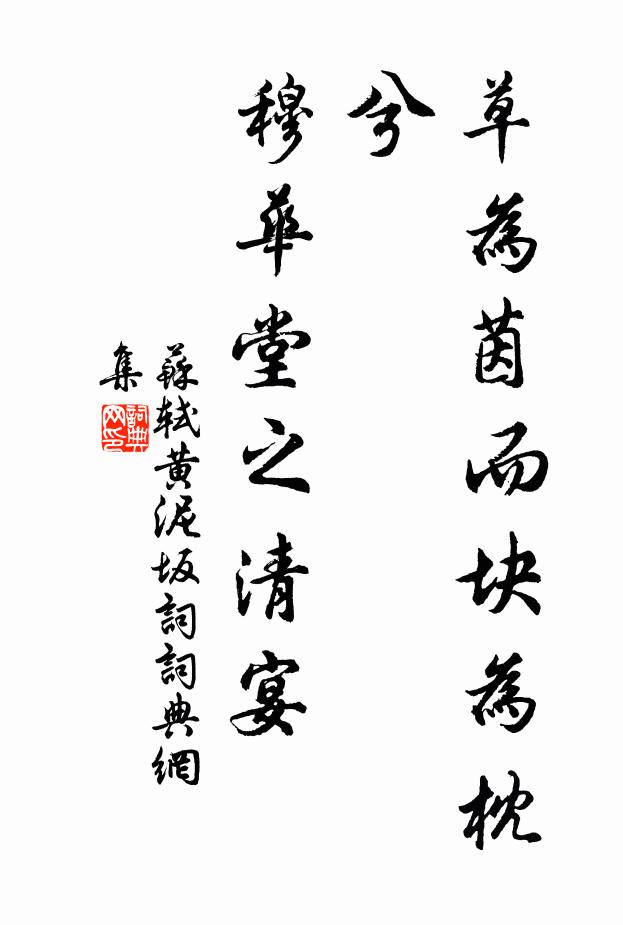 草為茵而块為枕
兮
穆華堂之清宴
蘇軾黄泥坂詞詞典網
集
詞典
网印